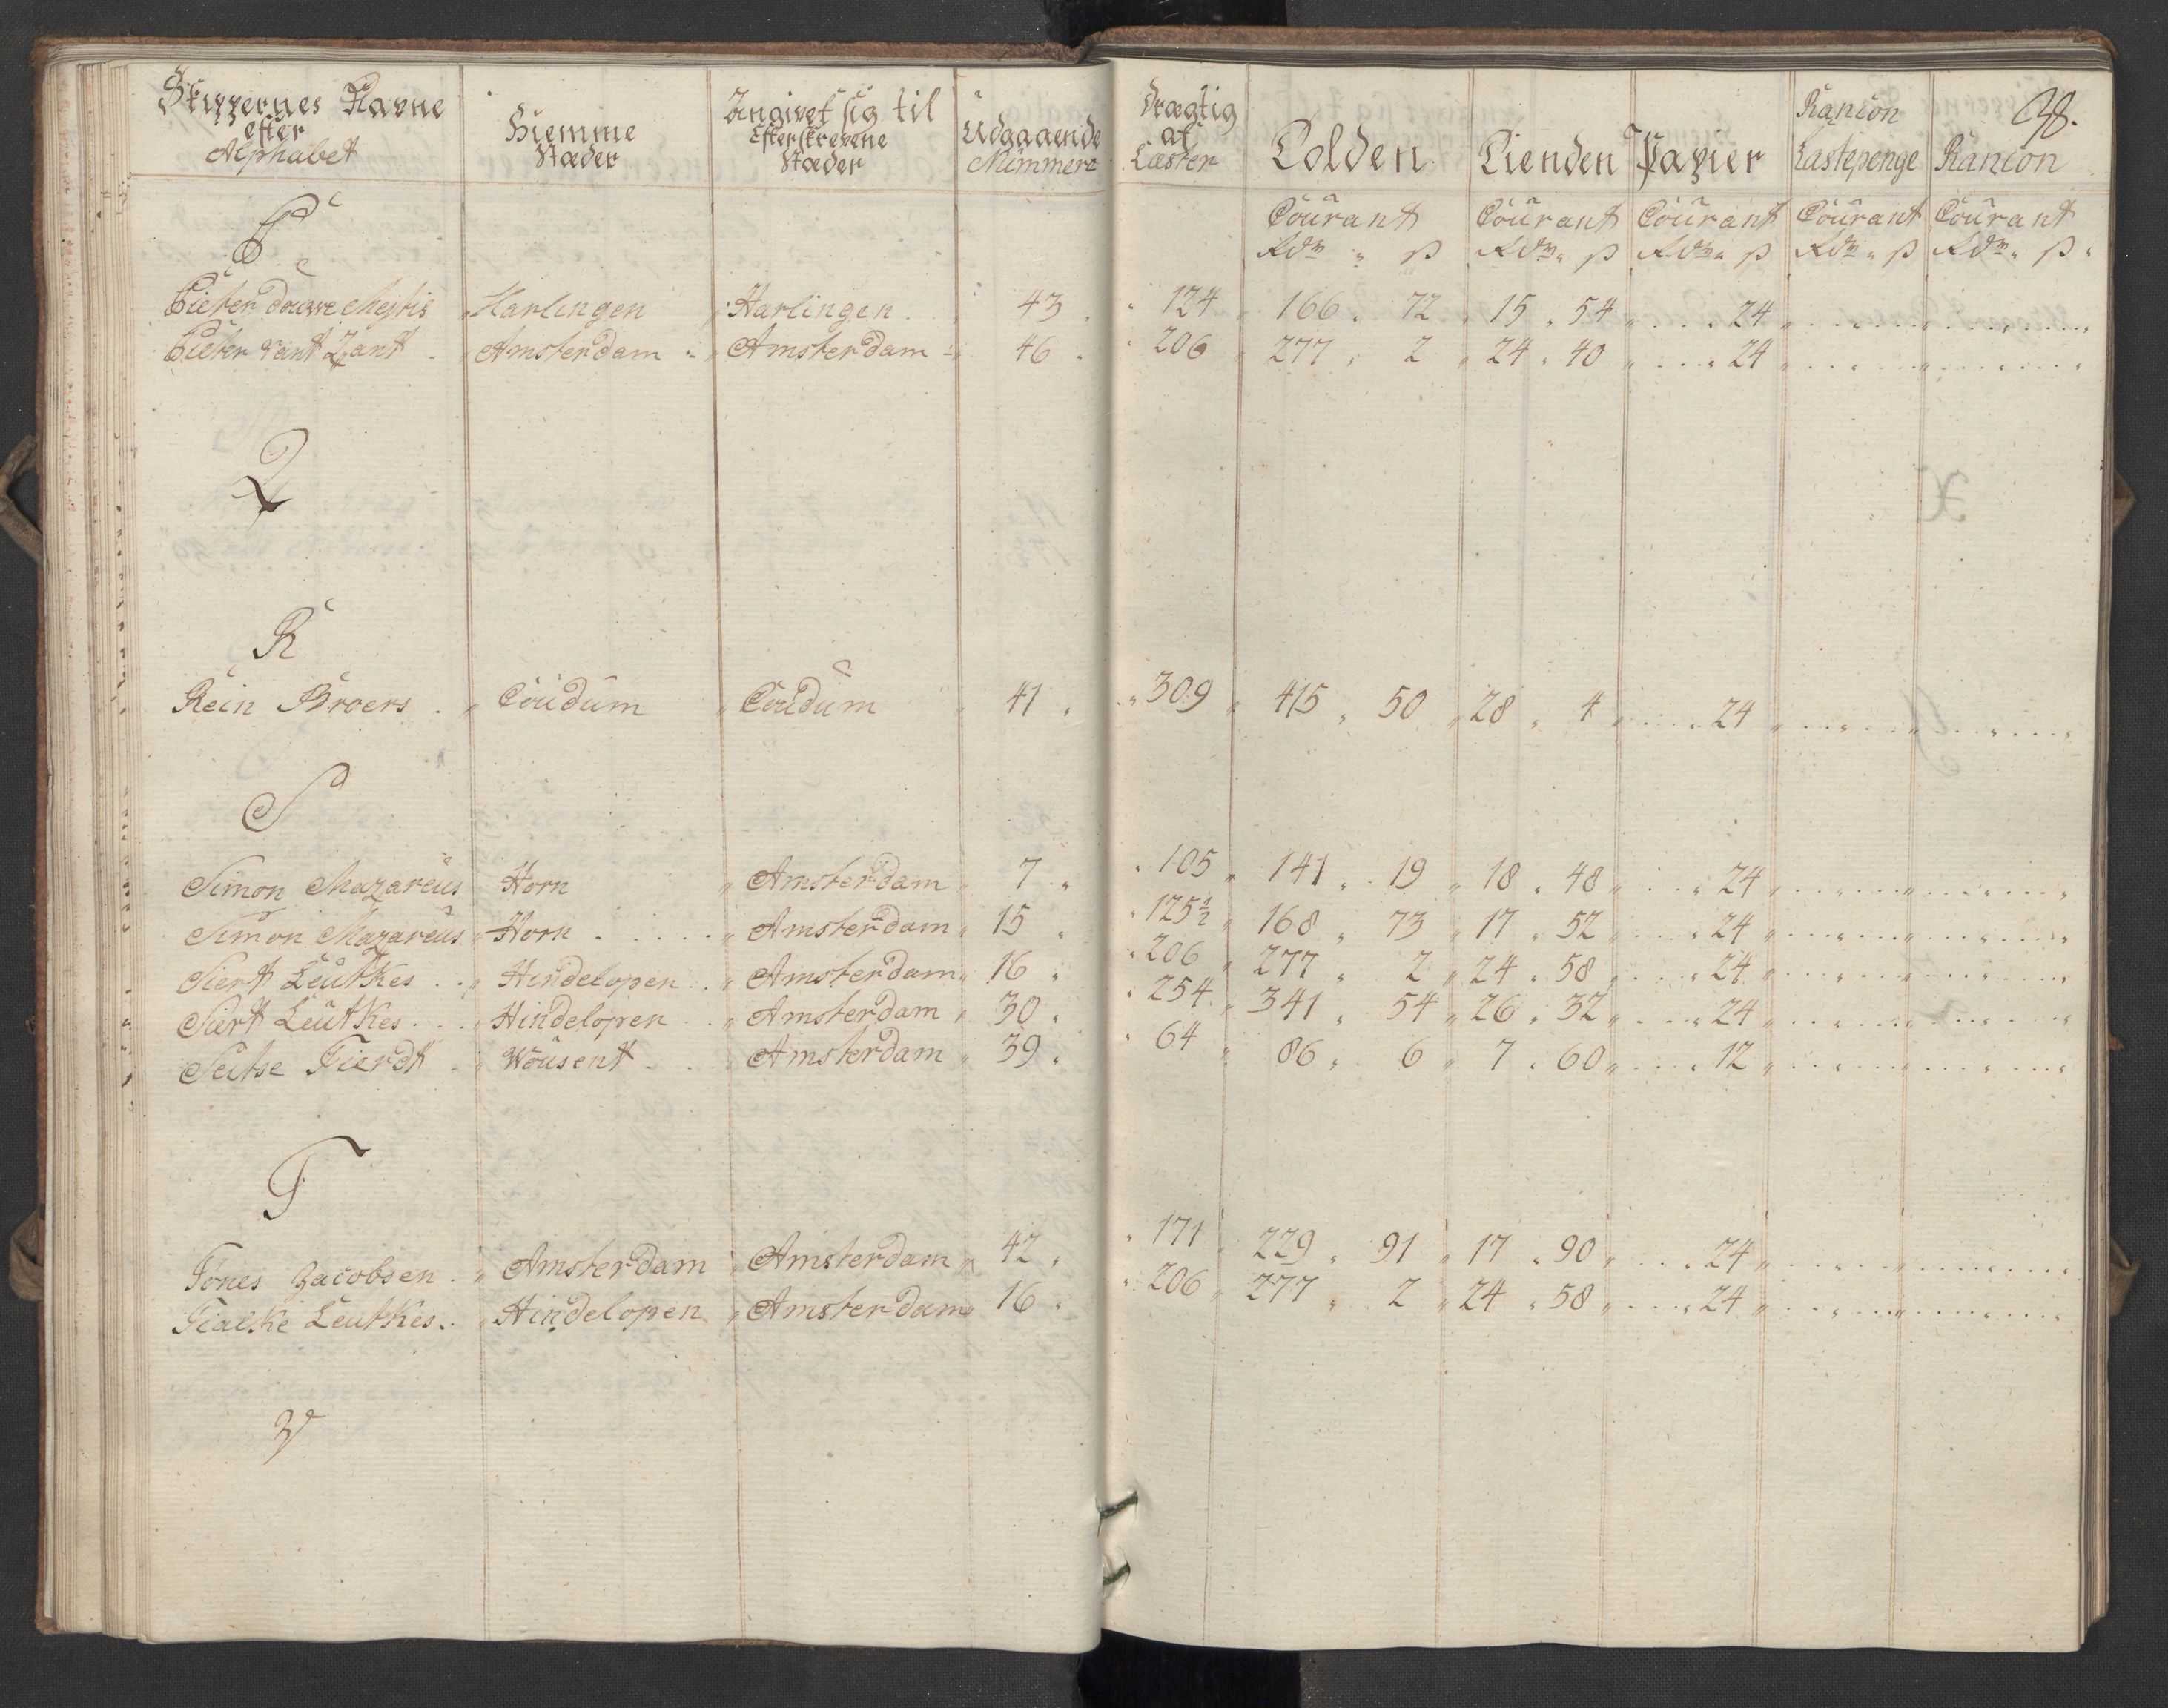 Skippernes Navne
efter
Alphabet
Hiemme
Stæder
Angivet sig til
Efterskrevene
Stæder
Udgaaende
Nummere
Drægtig
af
Læster
Tolden
Tienden
Papier
Rancon
Lastepenge
Rancon
28.
Courant Courant Courant Courant Courant
Rdr ß Rdr ß Rdr ß Rdr ß Rdr ß
P
Pieter Douwe Harlingen Harlingen 43 124 166 72 15 54 24
Pieter vant Zant Amsterdam Amsterdam 46 206 277 2 24 40 24
Q
R
Rein Broers Coudum Coudum 41 309 415 50 28 4 24
S
Simon Mazareus Horn Amsterdam 7 105 141 19 18 48 24
Simon Mazareus Horn Amsterdam 15 125½ 168 73 17 52 24
Siert Leutkes Hindelopen Amsterdam 16 206 277 2 24 58 24
Siert Leutkes Hindelopen Amsterdam 30 254 341 54 26 32 24
Seitse Tierdt Wousent Amsterdam 39 64 86 6 7 60 12
T
Tönes Jacobsen Amsterdam Amsterdam 42 171 229 91 17 90 24
Tialke Leutkes Hindelopen Amsterdam 16 206 277 2 24 58 24
V